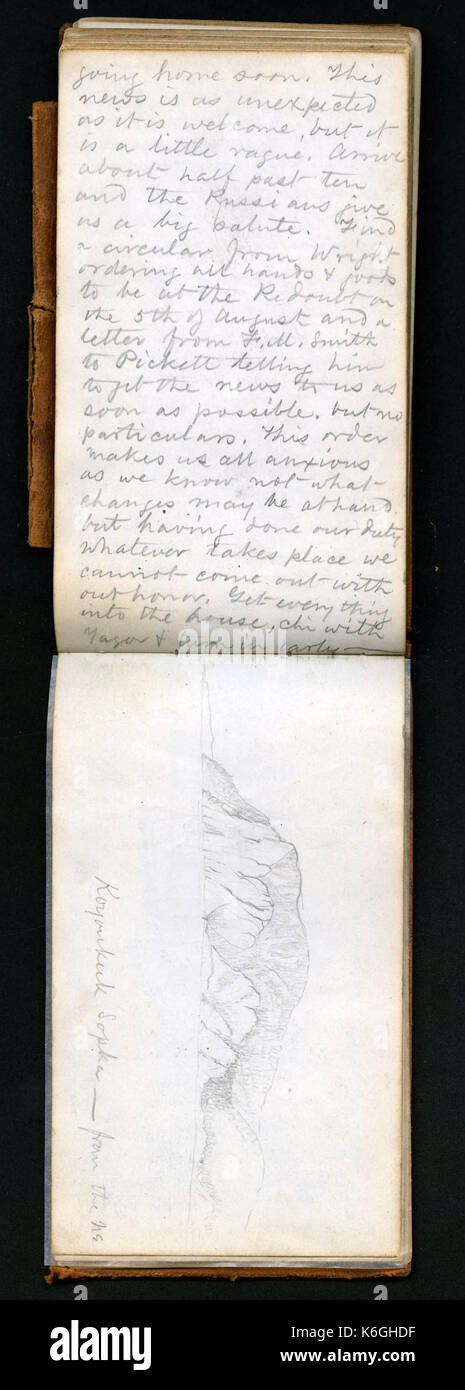 going home soon. This
news is as unexpected
as it is welcome, but it
is a little vague. Arrive
about half past ten
and the Russians give
us a big salute. Find
a circular from Wright
ordering all hands & goods
to be at the Redoubt on
the 5th of August and a
letter from F. M. Smith
to Pickett telling him
to get the news to us as
soon as possible. but no
particulars. This order
makes us all anxious
as we know not what
changes may be at hand
but having done our duty
whatever takes place we
cannot come out with
out honor. Get everything
into the house, chi with
Yagor & turn in early —
Koyoukuk Sopka — from the NE
alamy
alamy
Image ID: K6GHDF
www.alamy.com